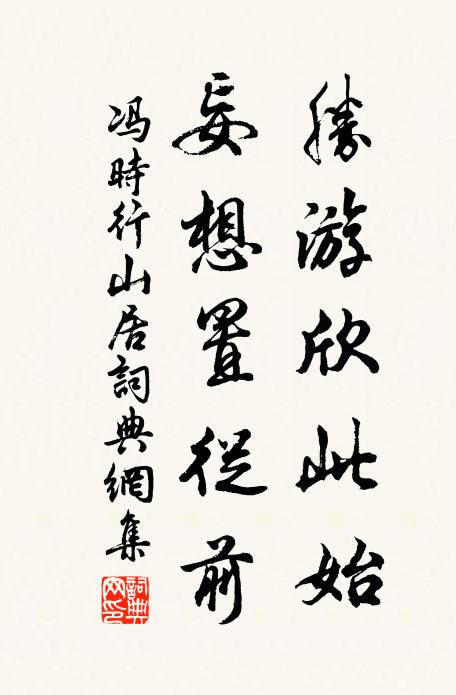 勝游欣此始
妄想置從前
冯時行山居詞典網集
詞典網印